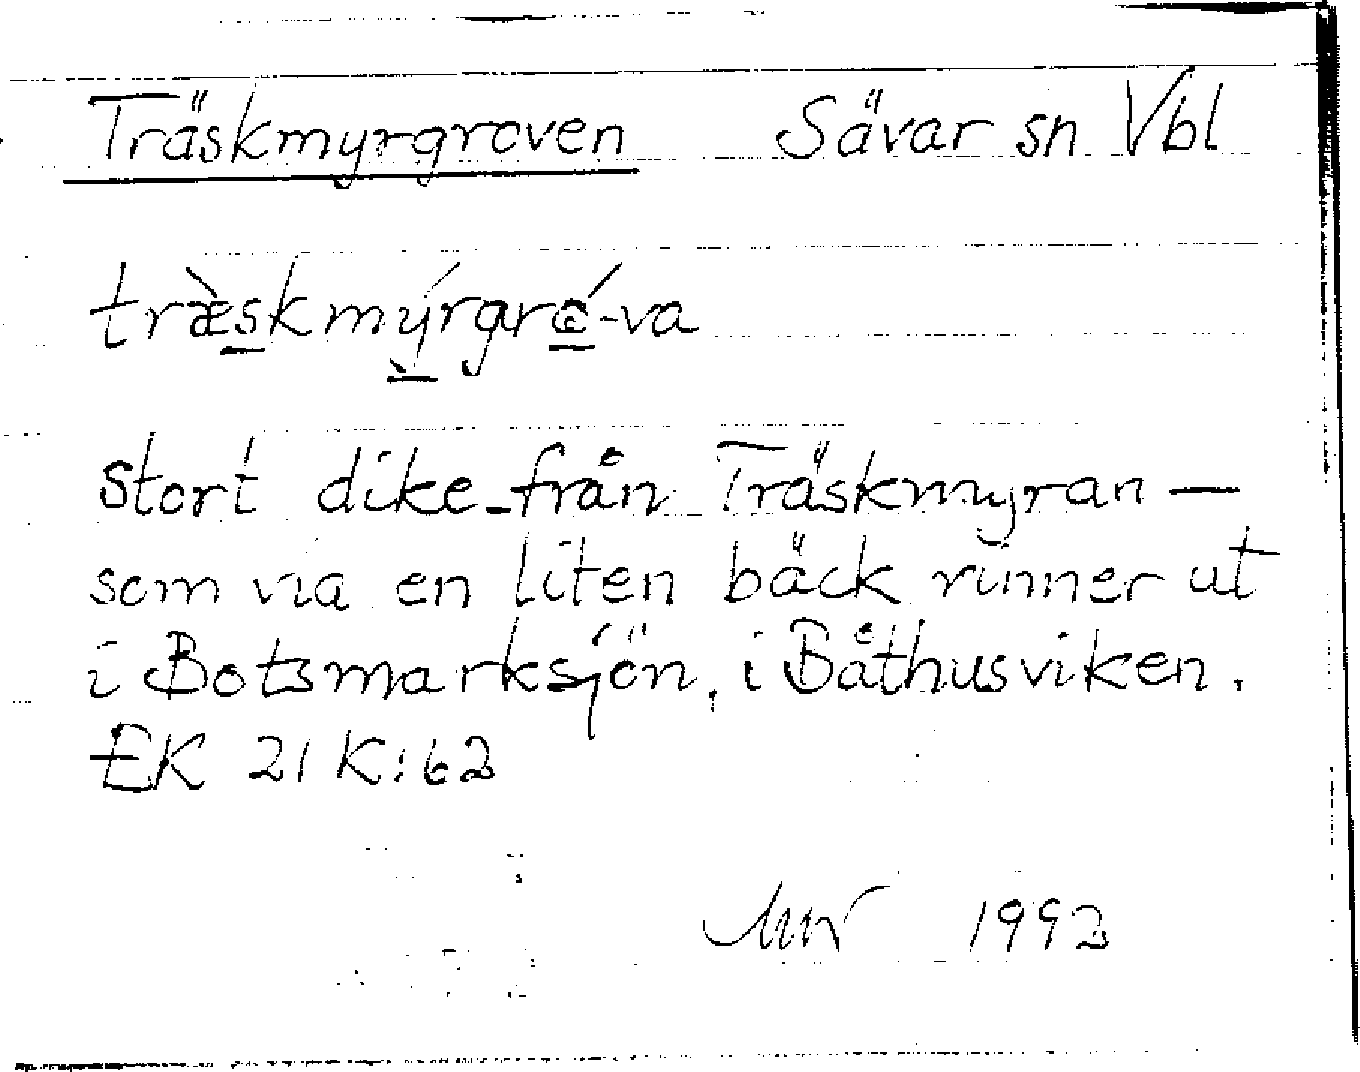 Träskmyrgroven Sävar sn Vbl
træ̀skmýrgrǿ-va
Stort dike från Träskmyran —
som via en liten bäck rinner ut
i Botsmarksjön, i Båthusviken.
EK 21 K:62
1992